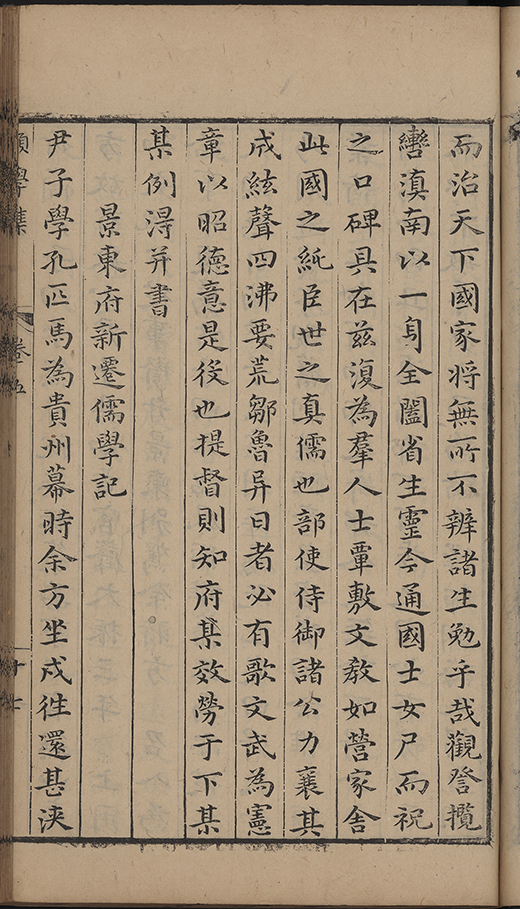 而治天下國家将無所不辨諸生勉乎哉觀詧攬
轡滇南以一身全闔省生靈今通國士女尸而祝
之口碑具在兹復為羣人士覃敷文教如營家舍
此國之純臣世之真儒也部使侍御諸公力襄其
成絃聲四沸要荒鄒魯异日者必有歌文武為憲
章以昭德意是役也提督則知府某效勞于下某
某例得并書
景東府新遷儒學記
尹子學孔匹馬為貴州幕時余方坐戍徃還甚浹
學集
卷五
十七